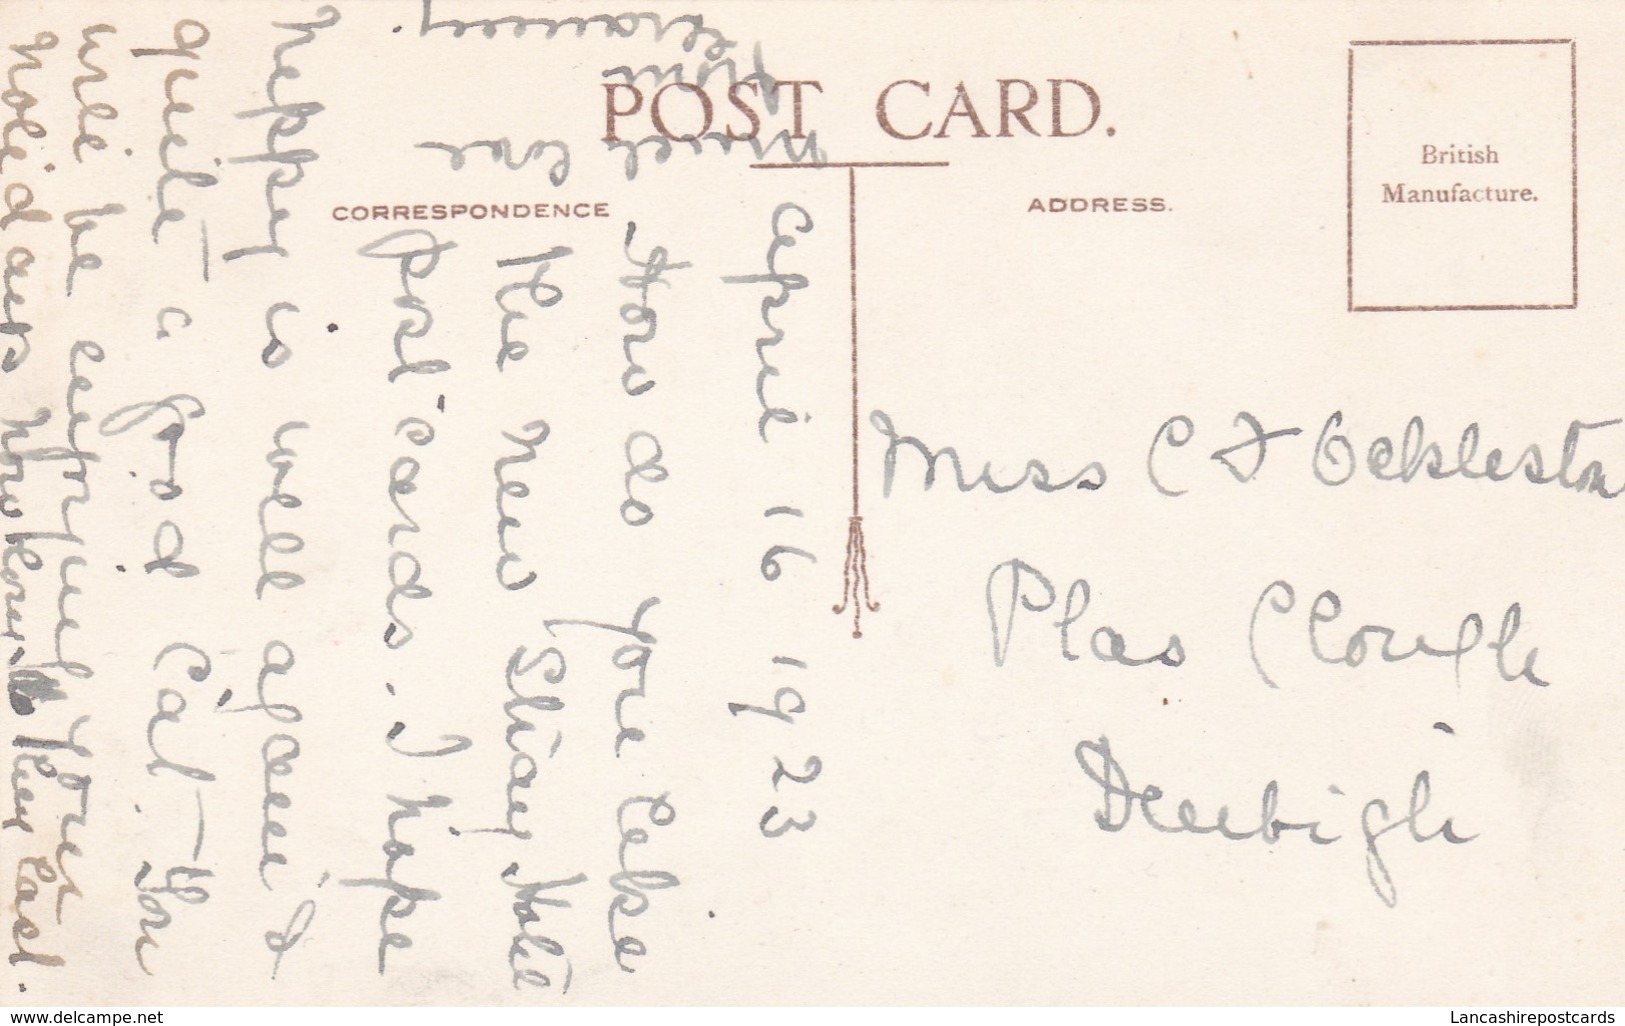 POST CARD.
CORRESPONDENCE
ADDRESS.
British
Manufacture.
April 16 1923
How do you like
the new Shiny
post cards. I hope
Neppy is well again &
quite a good Cat. You
will be enjoying your
holidays now
they last.
Much love
from
Granny.
Miss C F Eckleston
Plas Clough
Denbigh
www.delcampe.net
Lancashirepostcards